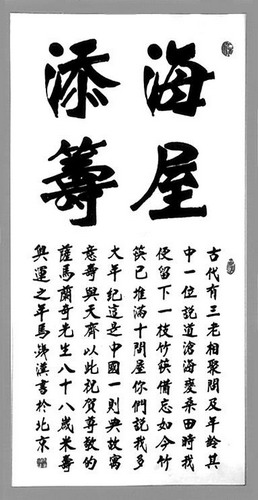 海屋
添籌
古代有三老相聚問及年齡其
中一位說道滄海變桑田時我
便留下一枝竹筷備忘如今竹
筷已堆滿十間屋你們說我多
大年紀這是中國一則典故寓
意壽與天齊以此祝賀尊敬的
薩馬蘭奇先生八十八歲米壽
奧運之年馬漢書於北京